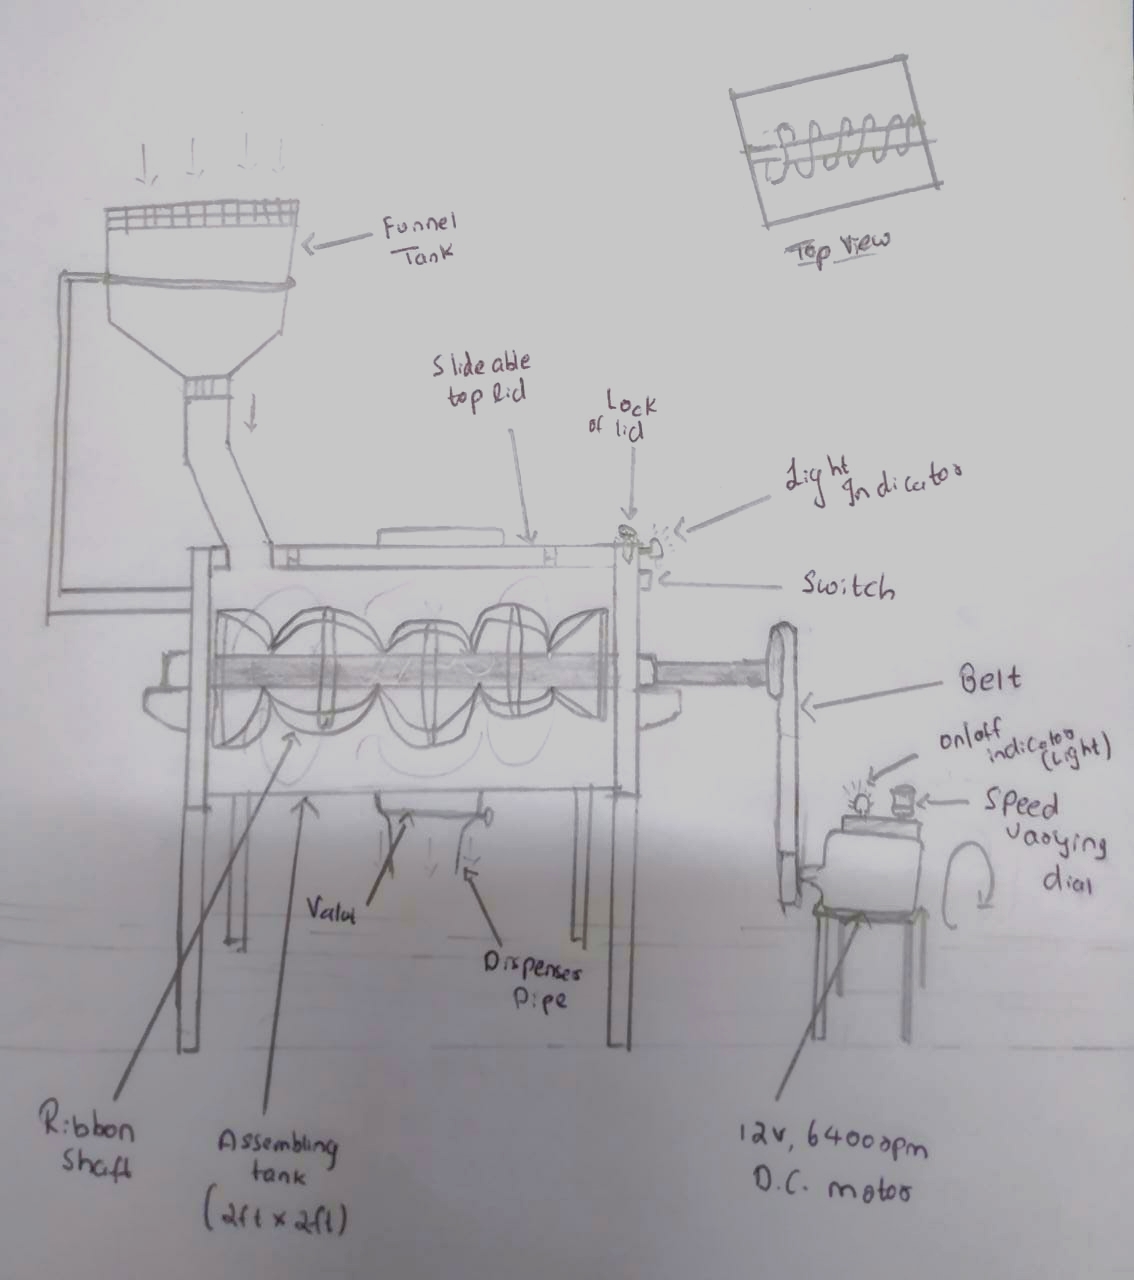 Top View
Funnel
Tank
Slideable
top lid
Lock
of lid
Light
Indicator
Switch
Belt
on/off
indicator
(Light)
Speed
Varying
dial
Valve
Dispenser
Pipe
Ribbon
Shaft
Assembling
tank
(2ft x 2ft)
12v, 6400rpm
D.C. motor